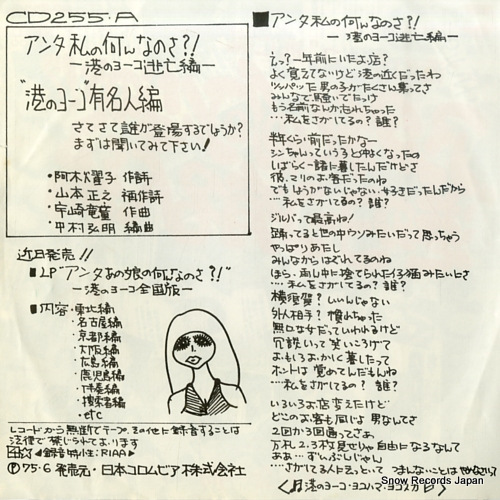 CD255-A
アンタ私の何んなのさ?!
ー港のヨーコ逃亡編ー
"港のヨーコ"有名人編
さてさて誰が登場するでしょうか?
まずは聞いてみて下さい!
・阿木燿子 作詩
・山本正之 補作詩
・宇崎竜童 作曲
・甲村弘明 編曲
近日発売!!
■LP"アンタあの娘の何んなのさ?!"
ー港のヨーコ全国版ー
■内容・東北編
・名古屋編
・京都編
・大阪編
・広島編
・鹿児島編
・伴奏編
・捜索者編
・etc
レコードから無断でテープ、その他に録音することは
法律で禁じられております。
◀録音特性:RIAA▶
Ⓟ75・6 発売元・日本コロムビア株式会社
■アンタ私の何んなのさ?!
ー港のヨーコ逃亡編ー
えっ?一年前にいたよ店?
よく覚えてないけど港の近くだったわ
ツッパッた男の子がたくさん集ってさ
みんなで騒いでたっけ
もう名前なんか忘れちゃった
…私をさがしてるの? 誰?
半年くらい前だったかなー
シンちゃんっていう子と仲よくなったの
しばらく一緒に暮したんだけどさ
彼、マリのお客だったのね
でもしょうがないじゃない、女好きだったんだから
…私をさがしてるの? 誰?
ジルバって最高ね!
踊ってると世の中ウソみたいだって思っちゃう
やっぱりあたし
みんなからはぐれてるのね
ほら、雨ん中に捨てられた仔猫みたいにさ
…私をさがしてるの? 誰?
横須賀? いいじゃない
外人相手? 慣れちゃった
無口な女だっていわれるけど
冗談いって笑いころげて
おもしろおかしく暮したって
ホントは覚めてんだもんね
…私をさがしてるの? 誰?
いろいろお店変えたけど
どこのお客も同じよ 男なんてさ
2回か3回通ってさあ、
万札2、3枚見せりゃ自由になるなんて
ああ…ずいぶんじゃん
…さがしてる人に云っといて つまんないことは
(♬港のヨーコ・ヨコハマ・ヨコスカ♬)
Snow Records Japan